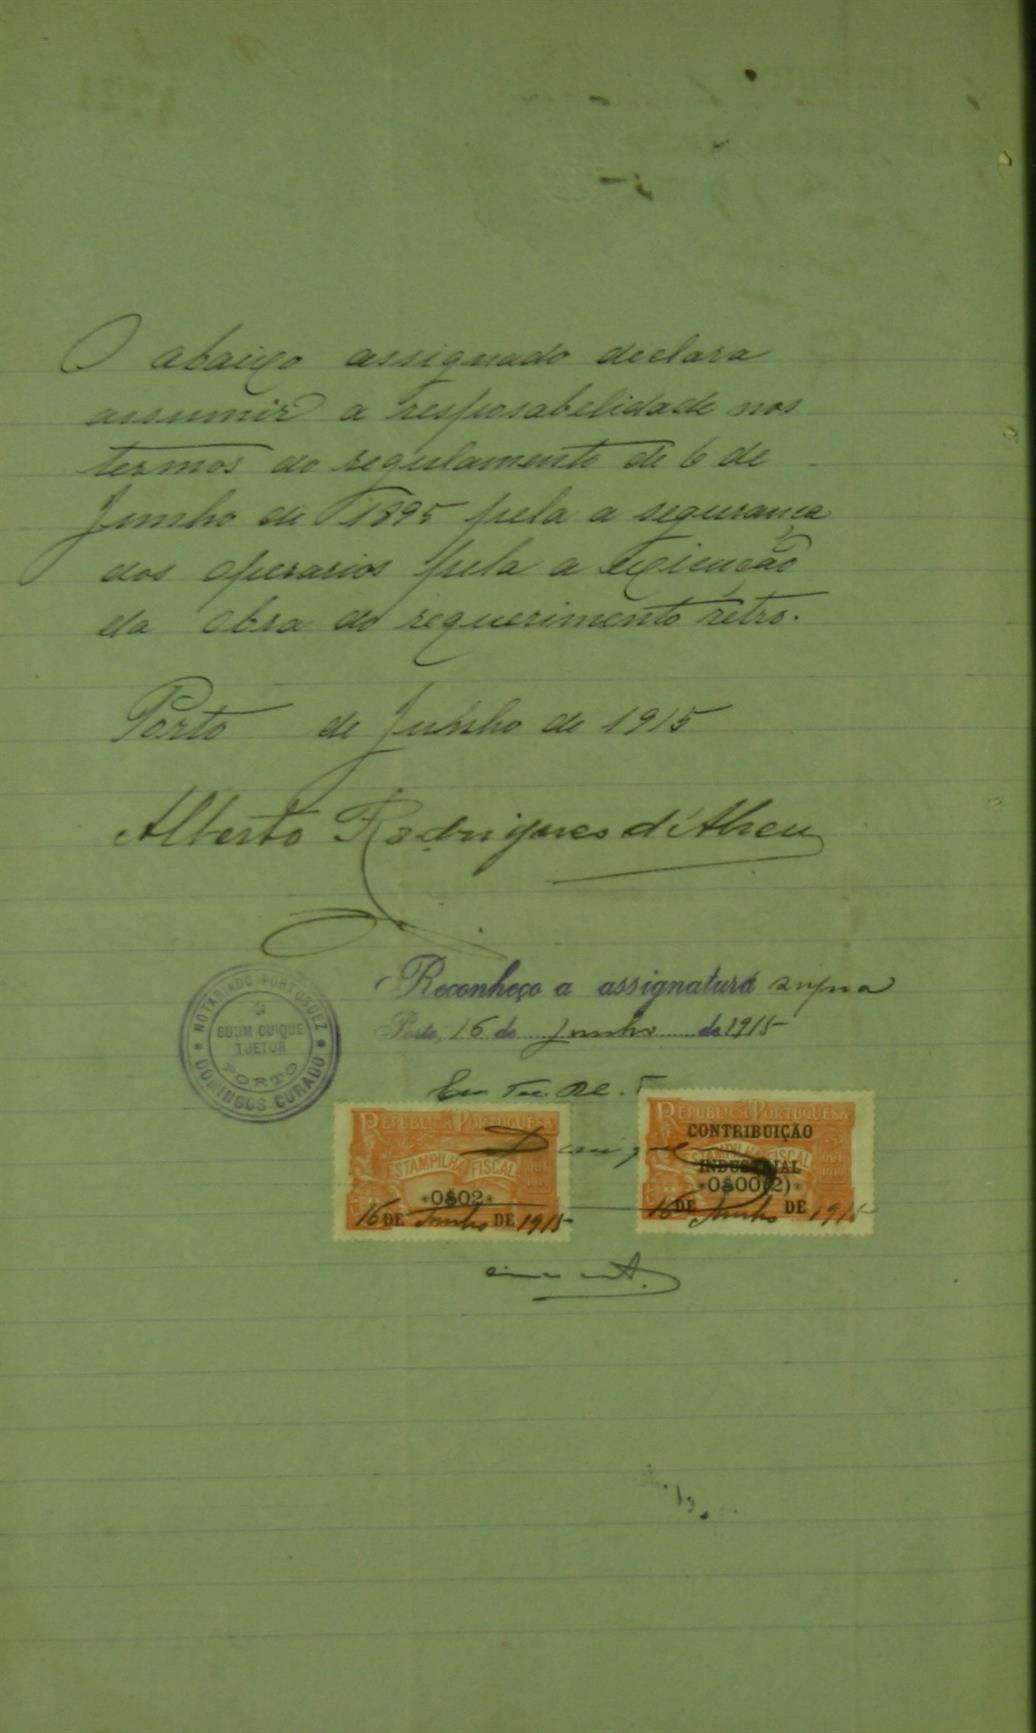 O abaixo assignado declara
assumir a resposabelidade nos
termos do regulamento de 6 de
Junho de 1895 pela a segurança
dos operarios pela a exicução
da obra do requerimento retro.
Porto de Junho de 1915
Alberto Rodrigues d'Abreu
Reconheço a assignatura supra
Porto, 16 de Junho de 1915
NOTARIADO PORTUGUEZ
SUUM CUIQUE
TUETUR
PORTO
DOMINGOS CURADO
REPUBLICA PORTUGUESA
ESTAMPILHA FISCAL
0$02
16 DE Junho DE 1915
REPUBLICA PORTUGUESA
CONTRIBUIÇÃO
ESTAMPILHA FISCAL
INDUSTRIAL
0$00(2)
16 DE Junho DE 1915